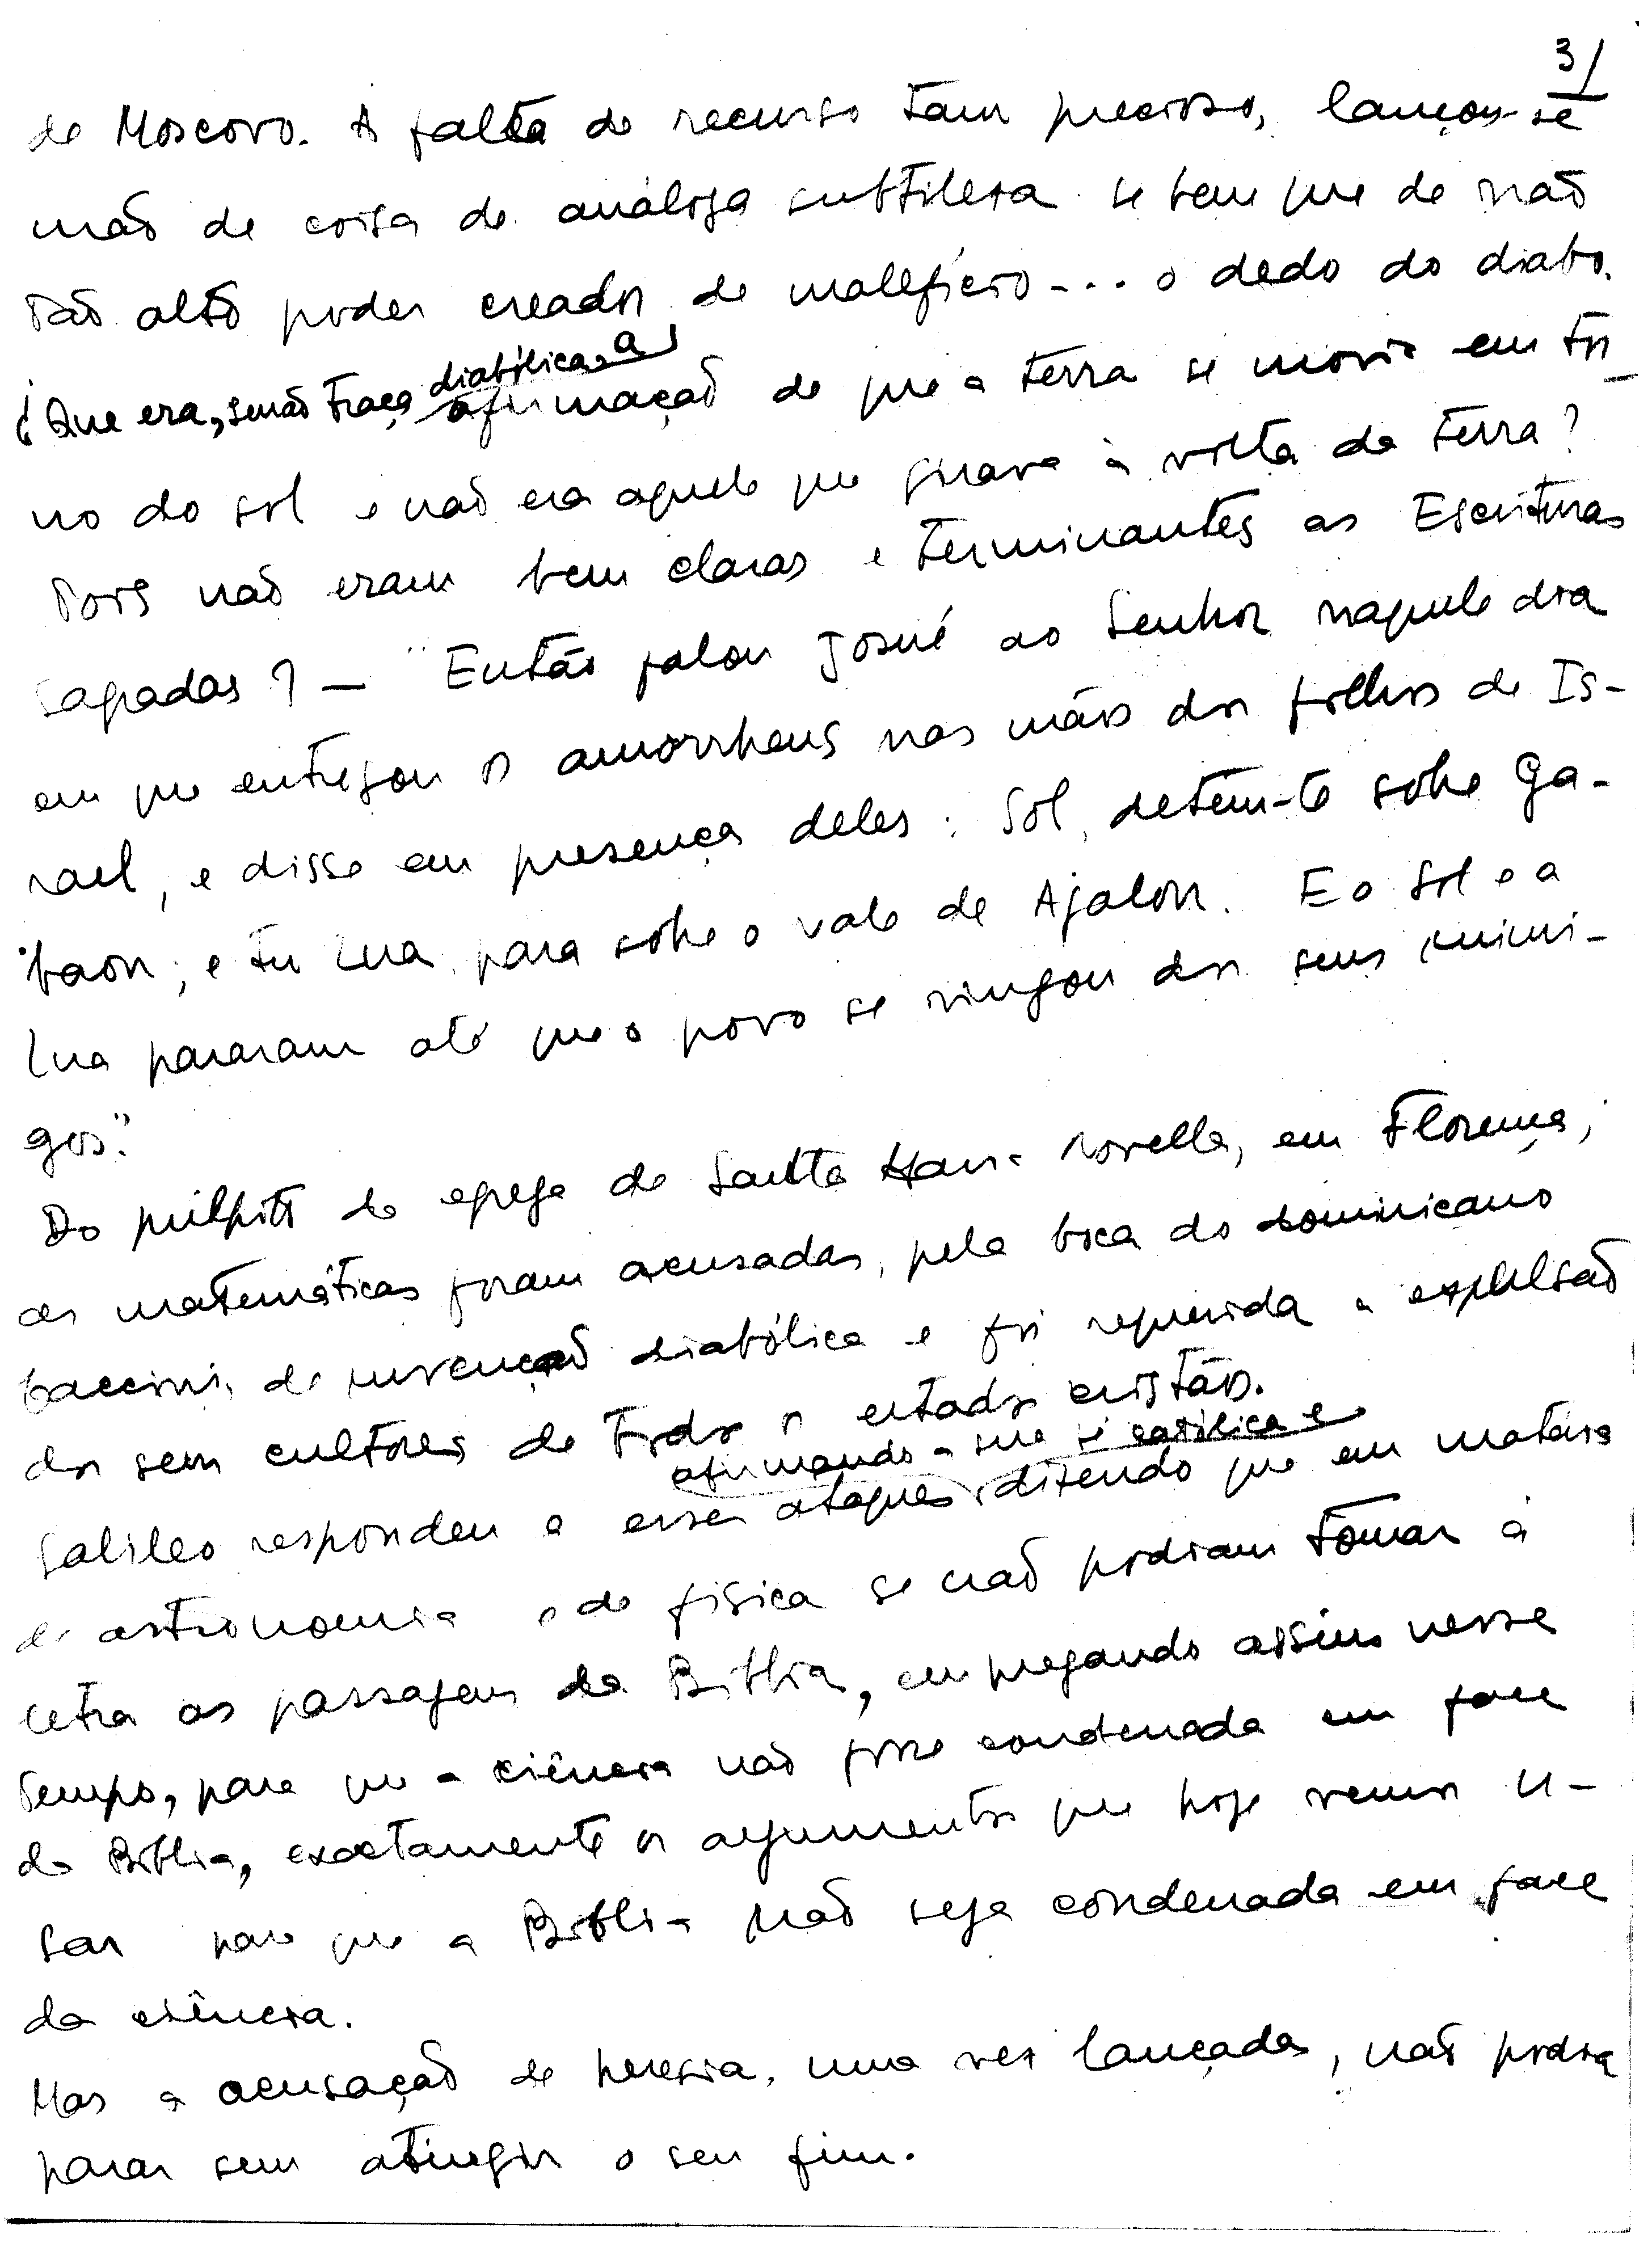 3/
de Moscovo. À falta de recurso tam precioso, lançou-se
mão de coisa de análoga subtileza se bem que de não
tão alto poder creador de malefício... o dedo do diabo.
¿Que era, senão traça diabólica, a afirmação de que a terra se movia em tor-
no do sol e não era aquele que girava à volta da terra?
Pois não eram bem claras e terminantes as Escrituras
Sagradas? — "Então falou Josué ao Senhor naquele dia
em que entregou os amorrheus nas mãos dos filhos de Is-
rael, e disse em presença deles: Sol, detém-te sobre Ga-
baon; e tu Lua, para sobre o vale de Ajalon. E o Sol e a
Lua pararam até que o povo se vingou dos seus inimi-
gos".
Do púlpito da egreja de Santa Maria Novella, em Florença,
as matemáticas foram acusadas, pela boca do dominicano
Caccini, de invenção diabólica e foi requerida a expulsão
dos seus cultores de todos os estados cristãos.
afirmando a sua fé católica e
Galileo respondeu a esses ataques dizendo que em matéria
de astronomia e de física se não podiam tomar à
letra as passagens da Bíblia, empregando assim nesse
tempo, para que a ciência não fosse condenada em face
da Bíblia, exactamente os argumentos que hoje vemos u-
sar para que a Bíblia não seja condenada em face
da ciência.
Mas a acusação de heresia, uma vez lançada, não podia
parar sem atingir o seu fim.